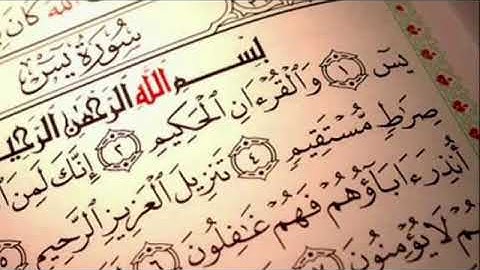 الله كان
سورة يس
بسم الله الرحمن الرحيم
يس ١ والقرءان الحكيم ٢ إنك لمن
صراط مستقيم ٤ تنزيل العزيز الرحيم
أنذر ءاباؤهم فهم غافلون ٦
لا يؤمنون